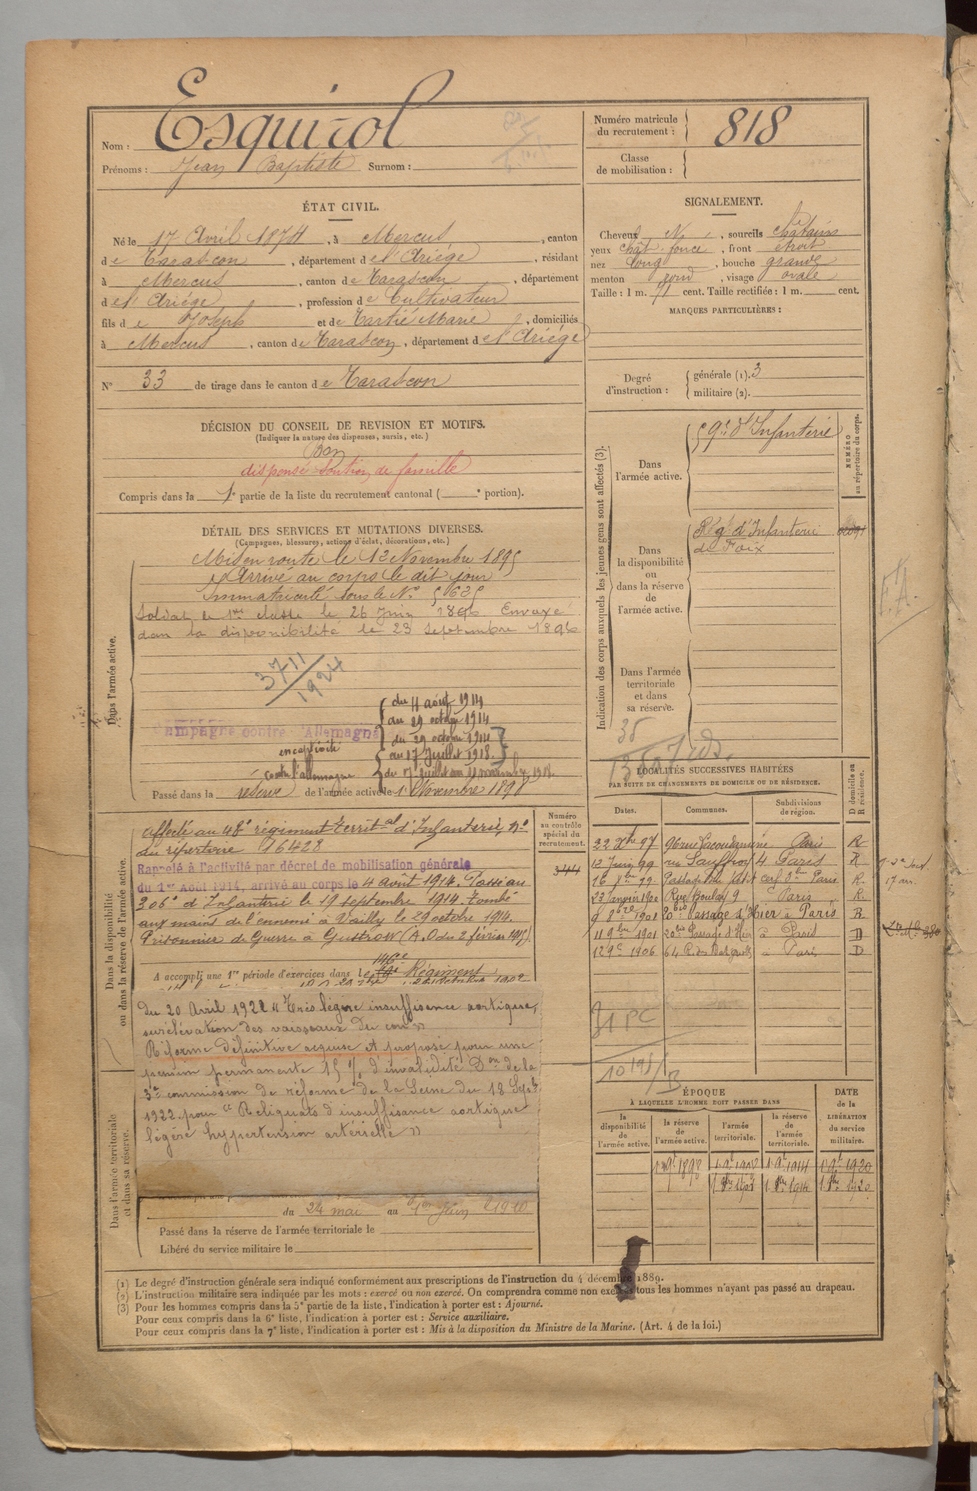 Nom : Esquirol
Prénoms : Jean Baptiste Surnom :
Numéro matricule du recrutement : 818
Classe de mobilisation :
ÉTAT CIVIL.
Né le 17 Avril 1874, à Mercus, canton
de Tarascon, département de l'Ariége, résidant
à Mercus, canton de Tarascon, département
de l'Ariége, profession de Cultivateur
fils de Joseph et de Tartié Marie, domiciliés
à Mercus, canton de Tarascon, département de l'Ariége
N° 33 de tirage dans le canton de Tarascon
SIGNALEMENT.
Cheveux N, sourcils chatains
yeux chât. foncé, front étroit
nez long, bouche grande
menton rond, visage ovale
Taille : 1 m. 71 cent. Taille rectifiée : 1 m. cent.
MARQUES PARTICULIÈRES :
Degré d'instruction : générale (1). 3
militaire (2).
DÉCISION DU CONSEIL DE REVISION ET MOTIFS.
(Indiquer la nature des dispenses, sursis, etc.)
Bon
dispensé soutien de famille
Compris dans la 1e partie de la liste du recrutement cantonal ( e portion).
DÉTAIL DES SERVICES ET MUTATIONS DIVERSES.
(Campagnes, blessures, actions d'éclat, décorations, etc.)
Dans l'armée active.
Mis en route le 12 Novembre 1895
Arrivé au corps le dit jour
Immatriculé sous le N° 5625
Soldat de 1ere classe le 26 Juin 1896 Envoyé
dans la disponibilité le 23 Septembre 1896
3711
1924
Campagne contre l'Allemagne
du 4 août 1914
au 29 octobre 1914
en captivité
du 29 octobre 1914
au 17 Juillet 1918
contre l'allemagne
Passé dans la réserve de l'armée active le 1 Novembre 1898
Indication des corps auxquels les jeunes gens sont affectés (3).
Dans l'armée active.
59e d'Infanterie
NUMÉRO au répertoire du corps.
Dans la disponibilité ou dans la réserve de l'armée active.
Régt d'Infanterie
de Foix
Dans l'armée territoriale et dans sa réserve.
F.A.
Dans la disponibilité ou dans la réserve de l'armée active.
Affecté au 48e régiment territal d'Infanterie, No
du répertoire 16428
Rappelé à l'activité par décret de mobilisation générale
du 1er Août 1914, arrivé au corps le 4 août 1914. Passé au
206e d'Infanterie le 19 septembre 1914. Tombé
aux mains de l'ennemi à Vailly le 29 octobre 1914.
Prisonnier de Guerre à Gustrow (A.O des 2 février 1915).
A accompli une 1re période d'exercices dans le 146e Régiment
Numéro au contrôle spécial du recrutement.
344
Du 20 Avril 1922 « Très légère insuffisance aortique,
surélévation des vaisseaux du cou »
Réforme définitive acquise et proposé pour une
pension permanente 15 % d'invalidité Don de la
3e commission de réforme de la Seine du 18 Septbre
1922 pour « Reliquats d'insuffisance aortique
légère hypertension artérielle »
Dans l'armée territoriale et dans sa réserve.
du 24 mai au 1er Juin 1910
Passé dans la réserve de l'armée territoriale le
Libéré du service militaire le
LOCALITÉS SUCCESSIVES HABITÉES
PAR SUITE DE CHANGEMENTS DE DOMICILE OU DE RÉSIDENCE.
Dates. Communes. Subdivisions de région. D domicile ou R résidence.
22 Xbre 97 Paris R
12 Juin 99 Paris R
Paris R.
23 Janvier 1900 Rue Boulay 9 Paris R
1901 Passage St à Paris R
11 9bre 1901 à Paris D
12 9e 1906 à Paris D
ÉPOQUE
À LAQUELLE L'HOMME DOIT PASSER DANS
la disponibilité de l'armée active. la réserve de l'armée active. l'armée territoriale. la réserve de l'armée territoriale.
DATE de la LIBÉRATION du service militaire.
1 9e 1898 1 9e 1908 1 9e 1914 1 9e 1920
(1) Le degré d'instruction générale sera indiqué conformément aux prescriptions de l'instruction du 4 décembre 1889.
(2) L'instruction militaire sera indiquée par les mots : exercé ou non exercé. On comprendra comme non exercés tous les hommes n'ayant pas passé au drapeau.
(3) Pour les hommes compris dans la 5e partie de la liste, l'indication à porter est : Ajourné.
Pour ceux compris dans la 6e liste, l'indication à porter est : Service auxiliaire.
Pour ceux compris dans la 7e liste, l'indication à porter est : Mis à la disposition du Ministre de la Marine. (Art. 4 de la loi.)